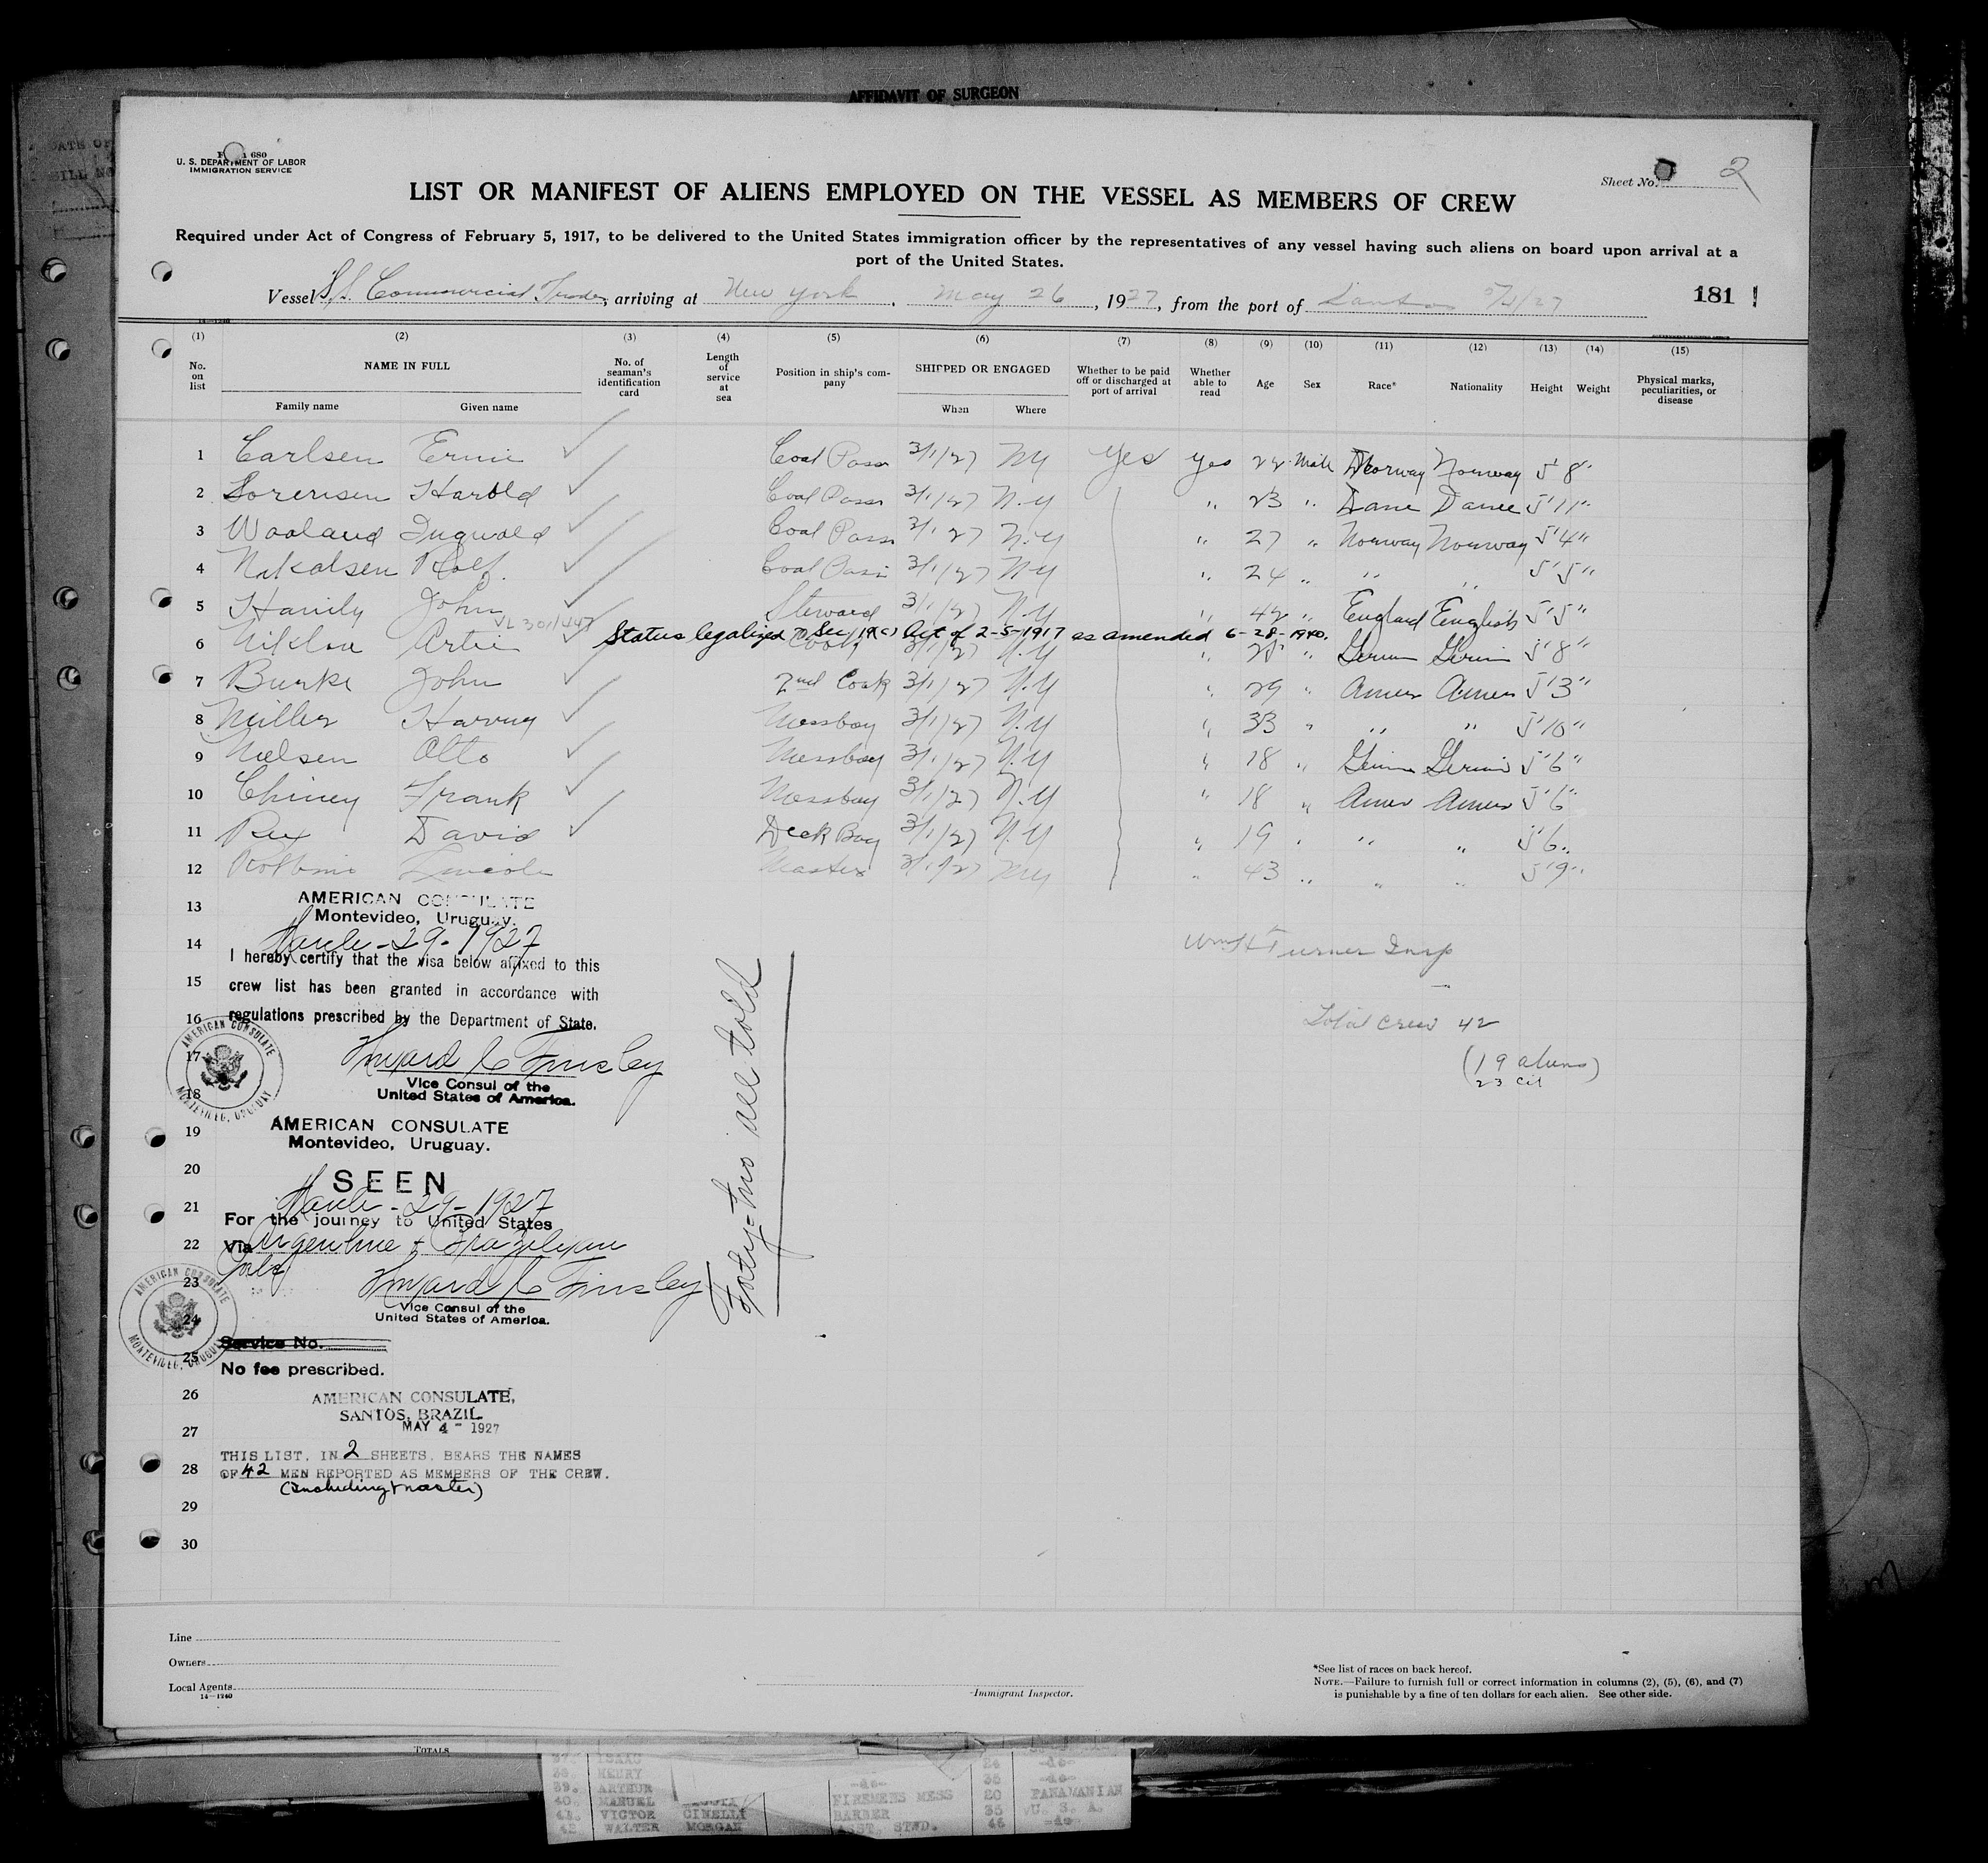 AFFIDAVIT OF SURGEON
U. S. DEPARTMENT OF LABOR
IMMIGRATION SERVICE
Sheet No. 2
LIST OR MANIFEST OF ALIENS EMPLOYED ON THE VESSEL AS MEMBERS OF CREW
Required under Act of Congress of February 5, 1917, to be delivered to the United States immigration officer by the representatives of any vessel having such aliens on board upon arrival at a
port of the United States.
Vessel SS Commercial Trader, arriving at New York, May 26, 1927, from the port of Santos 5/4/27 181
(1) (2) (3) (4) (5) (6) (7) (8) (9) (10) (11) (12) (13) (14) (15)
No. on list NAME IN FULL Family name Given name No. of seaman's identification card Length of service at sea Position in ship's company SHIPPED OR ENGAGED When Where Whether to be paid off or discharged at port of arrival Whether able to read Age Sex Race* Nationality Height Weight Physical marks, peculiarities, or disease
1 Carlsen Ernie Coal Passr 3/1/27 NY Yes yes 22 Male Norway Norway 5'8"
2 Sorensen Harold Coal Passr 3/1/27 N.Y " 23 " Dane Dane 5'11"
3 Waaland Ingwald Coal Passr 3/1/27 N.Y " 27 " Norway Norway 5'4"
4 Rolf Coal Passr 3/1/27 NY " 24 " " " 5'5"
5 Hanily John Steward 3/1/27 N.Y " 42 " England English 5'5"
Status legalized Sec 19(c) Act of 2-5-1917 as amended 6-28-1940.
6 Artie Cook 3/1/27 N.Y " " 5'8"
7 Burke John 2nd Cook 3/1/27 N.Y " 29 " Amer Amer 5'3"
8 Miller Harvey Messboy 3/1/27 N.Y " 33 " " " 5'10"
9 Nielsen Otto Messboy 3/1/27 N.Y " 18 " 5'6"
10 Chiney Frank Messboy 3/1/27 N.Y " 18 " Amer Amer 5'6"
11 Rex David Deck Boy 3/1/27 N.Y " 19 " " " 5'6"
12 Robbins Lincoln Master 3/1/27 NY " 43 " " " 5'9"
13 AMERICAN CONSULATE
Montevideo, Uruguay.
14 March-29-1927
Wm H Turner Insp
I hereby certify that the visa below affixed to this
15 crew list has been granted in accordance with
16 regulations prescribed by the Department of State.
Total Crew 42
(19 aliens)
23 cit
Forty-two all told
AMERICAN CONSULATE
MONTEVIDEO, URUGUAY
17
Vice Consul of the
18 United States of America.
19 AMERICAN CONSULATE
Montevideo, Uruguay.
20 SEEN
21 March-29-1927
For the journey to United States
22 Via Argentine & Brazilian
23
AMERICAN CONSULATE
MONTEVIDEO, URUGUAY
Vice Consul of the
24 United States of America.
Service No.
25 No fee prescribed.
26 AMERICAN CONSULATE,
SANTOS, BRAZIL.
27 MAY 4 - 1927
THIS LIST, IN 2 SHEETS, BEARS THE NAMES
28 OF 42 MEN REPORTED AS MEMBERS OF THE CREW.
(including master)
29
30
Line
Owners
Local Agents
14-1240
Immigrant Inspector.
*See list of races on back hereof.
NOTE.—Failure to furnish full or correct information in columns (2), (5), (6), and (7)
is punishable by a fine of ten dollars for each alien. See other side.
TOTALS
37. ISAAC 24 -do-
38. HENRY 35 -do-
39. ARTHUR -do-
40. MANUEL FIREMENS MESS 20 PANAMANIAN
41. VICTOR CINELLI BARBER 35 U. S. A.
42. WALTER MORGAN ASST. STWD. 46 -do-